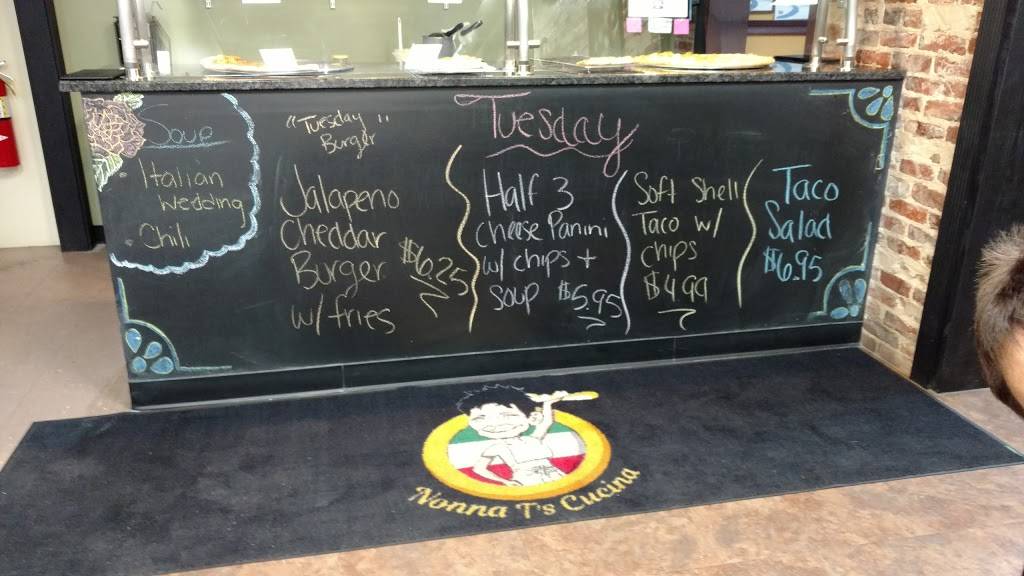 Tuesday
Soup
Italian
Wedding
Chili
"Tuesday"
Burger
Jalapeno
Cheddar
Burger $6.25
w/ fries
Half 3
cheese Panini
w/ chips +
soup $5.95
Soft Shell
Taco w/
chips
$4.99
Taco
Salad
$6.95
Nonna T's Cucina